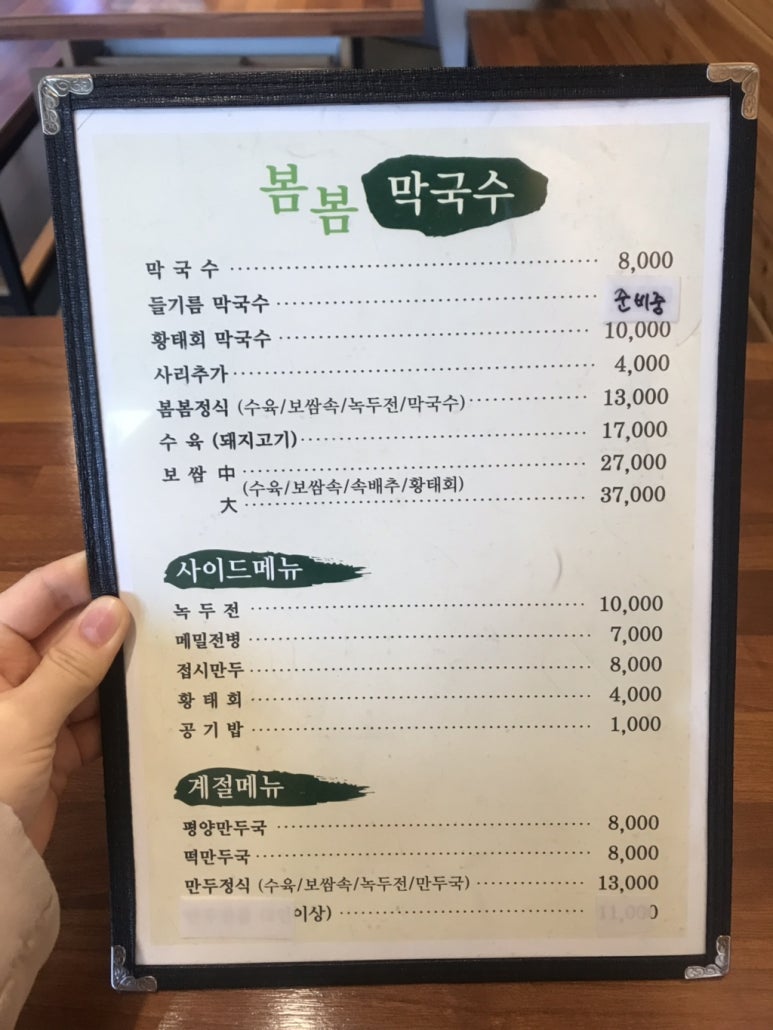 봄봄 막국수
막 국 수 8,000
들기름 막국수 준비중
황태회 막국수 10,000
사리추가 4,000
봄봄정식 (수육/보쌈속/녹두전/막국수) 13,000
수 육 (돼지고기) 17,000
보 쌈 中 27,000
(수육/보쌈속/속배추/황태회)
大 37,000
사이드메뉴
녹 두 전 10,000
메밀전병 7,000
접시만두 8,000
황 태 회 4,000
공 기 밥 1,000
계절메뉴
평양만두국 8,000
떡만두국 8,000
만두정식 (수육/보쌈속/녹두전/만두국) 13,000
이상) 11,000